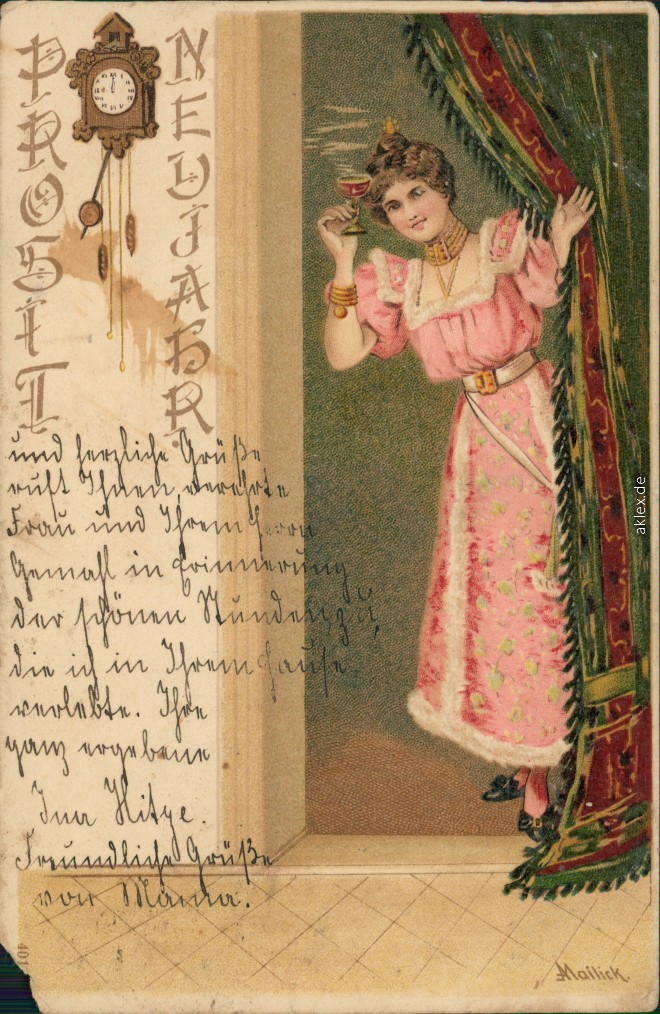 PROSIT
NEUJAHR
und herzliche Grüße
ruft Ihnen, verehrte
Frau und Ihrem Herrn
Gemahl in Erinnerung
der schönen Stunden, zu,
die ich in Ihrem Hause
verlebte. Ihre
ganz ergebene
Ina
Freundliche Grüße
von Mama.
401
Mailick.
aklex.de